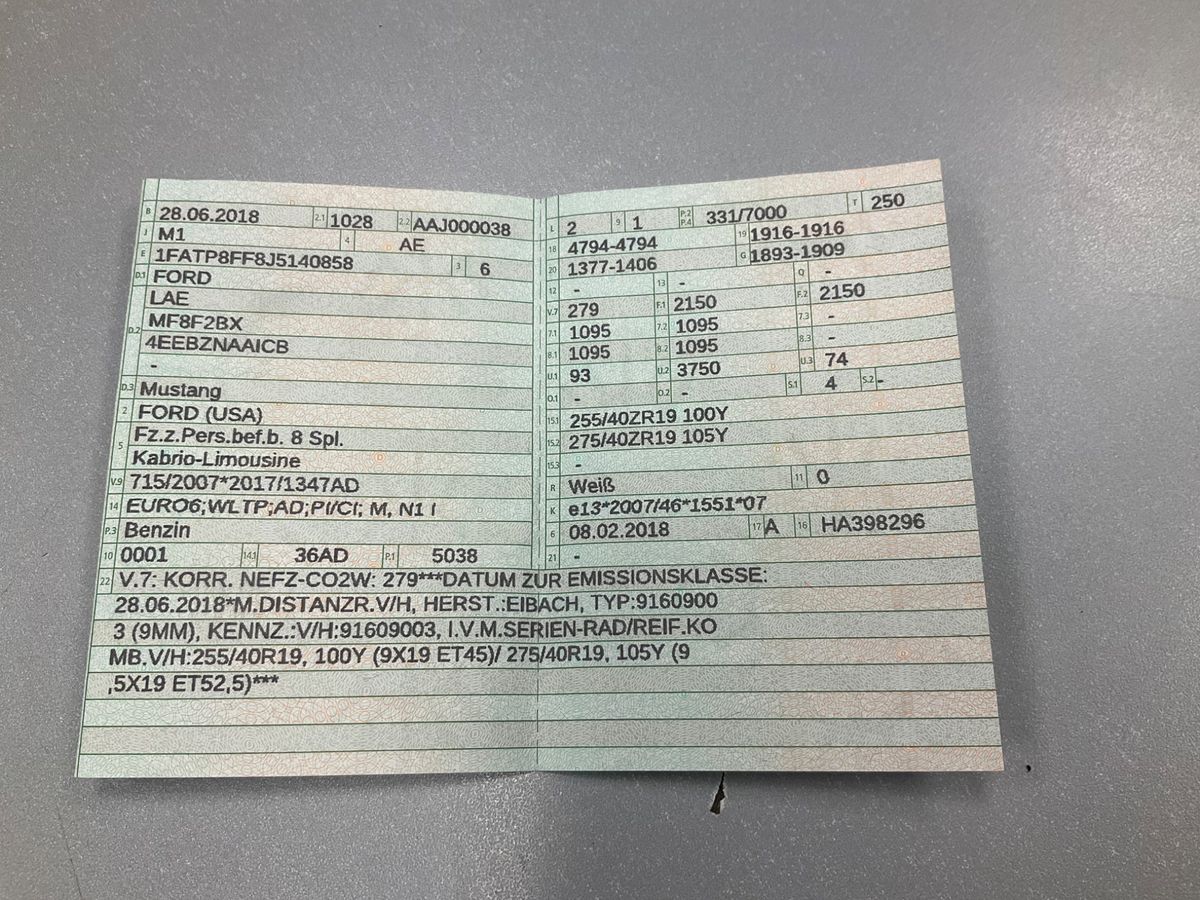 B 28.06.2018 2.1 1028 2.2 AAJ000038
J M1 4 AE
E 1FATP8FF8J5140858 3 6
D.1 FORD
D.2 LAE
MF8F2BX
4EEBZNAAICB
-
D.3 Mustang
2 FORD (USA)
5 Fz.z.Pers.bef.b. 8 Spl.
Kabrio-Limousine
V.9 715/2007*2017/1347AD
14 EURO6;WLTP;AD;PI/CI; M, N1 I
P.3 Benzin
10 0001 14.1 36AD P.1 5038
L 2 9 1 P.2 P.4 331/7000 T 250
18 4794-4794 19 1916-1916
20 1377-1406 G 1893-1909
12 - 13 - Q -
V.7 279 F.1 2150 F.2 2150
7.1 1095 7.2 1095 7.3 -
8.1 1095 8.2 1095 8.3 -
U.1 93 U.2 3750 U.3 74
O.1 - O.2 - S.1 4 S.2 -
15.1 255/40ZR19 100Y
15.2 275/40ZR19 105Y
15.3 -
R Weiß 11 0
K e13*2007/46*1551*07
6 08.02.2018 17 A 16 HA398296
21 -
22 V.7: KORR. NEFZ-CO2W: 279***DATUM ZUR EMISSIONSKLASSE:
28.06.2018*M.DISTANZR.V/H, HERST.:EIBACH, TYP:9160900
3 (9MM), KENNZ.:V/H:91609003, I.V.M.SERIEN-RAD/REIF.KO
MB.V/H:255/40R19, 100Y (9X19 ET45)/ 275/40R19, 105Y (9
,5X19 ET52,5)***